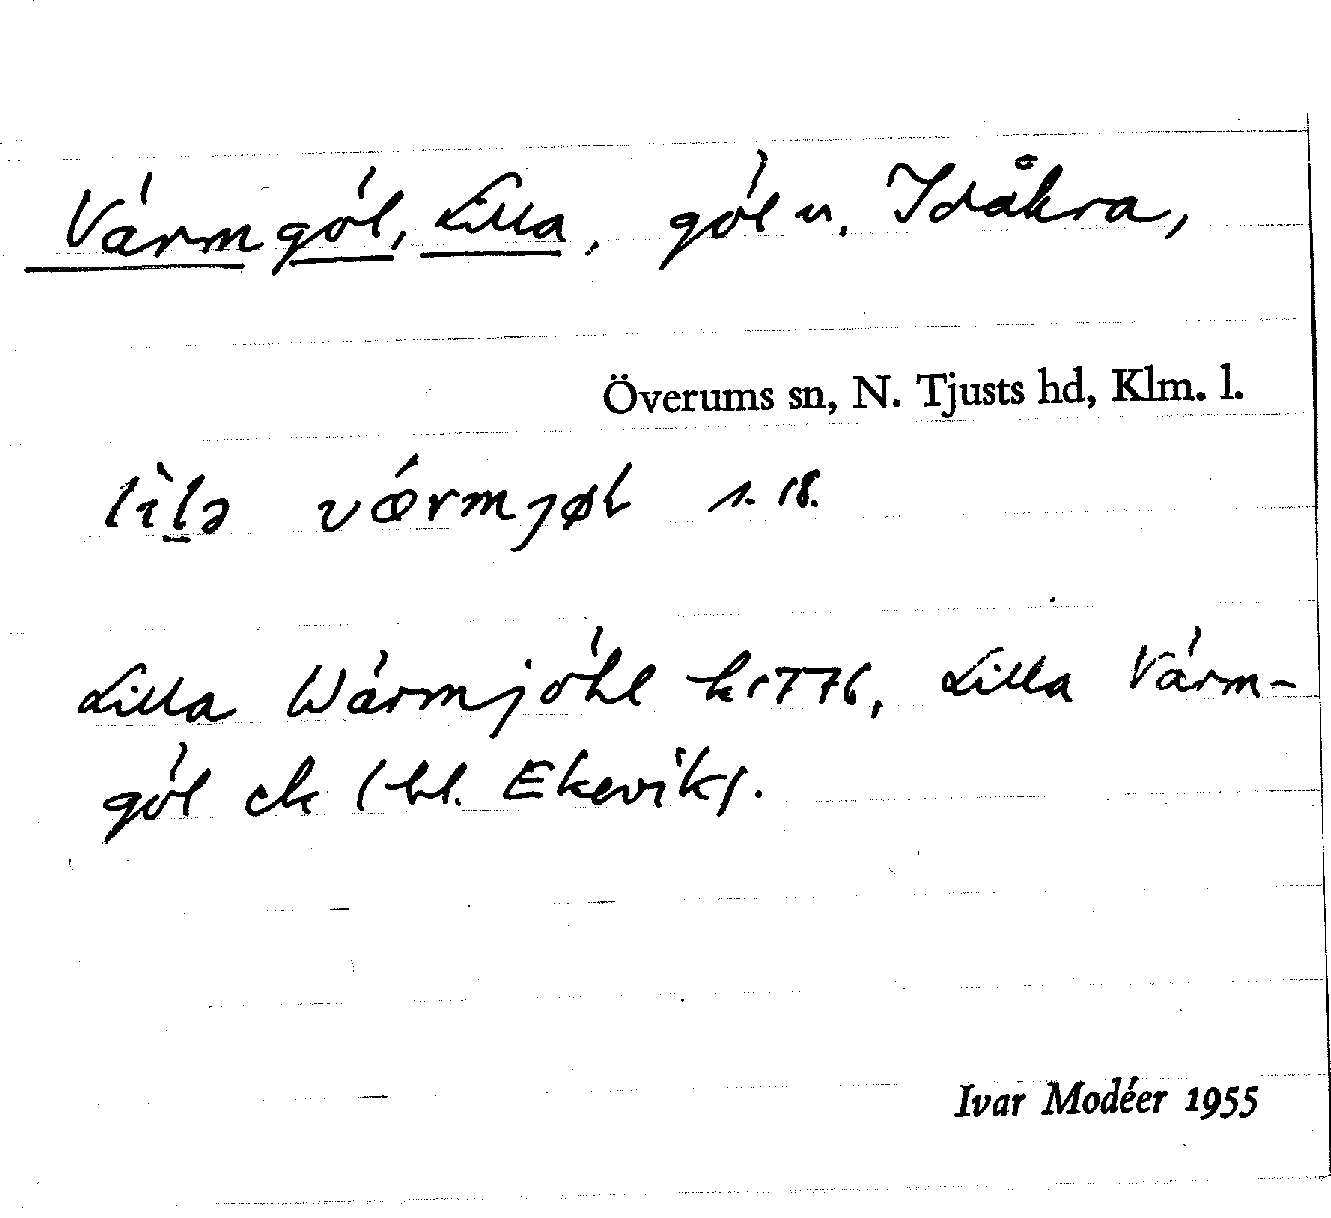 Värmgöl, Lilla, göl u. Idåkra,
Överums sn, N. Tjusts hd, Klm. l.
lìlə værmjøl s. 18.
Lilla Wärmjöhl k 1776, Lilla Värm-
göl ek (bl. Ekevik).
Ivar Modéer 1955